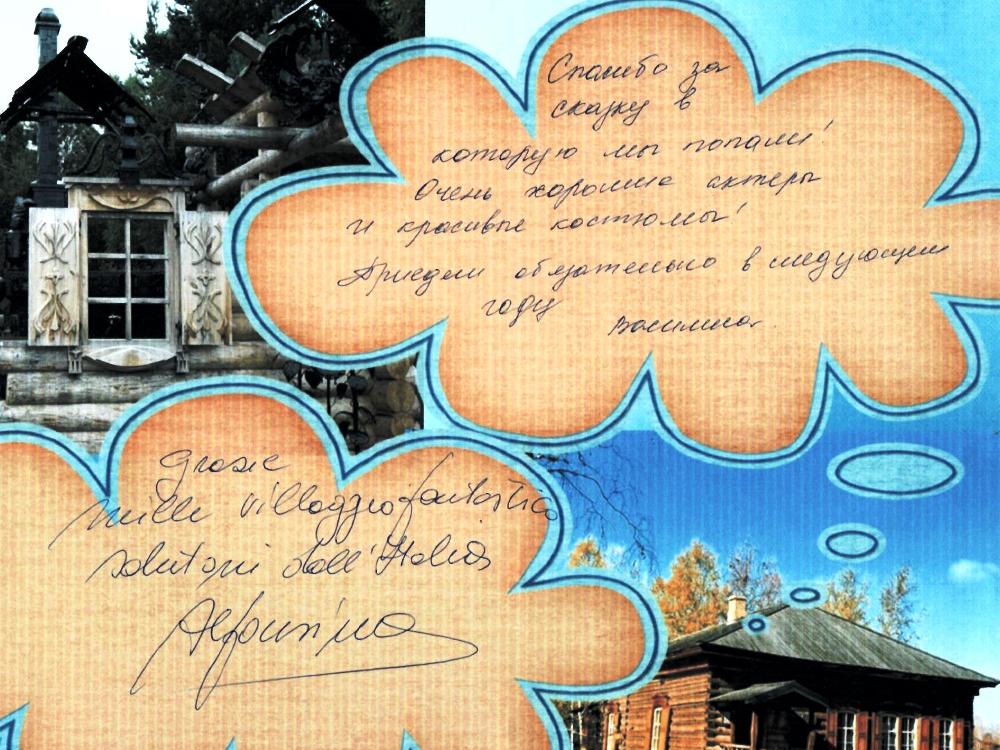 Спасибо за
сказку в
которую мы попали!
Очень хорошие актеры
и красивые костюмы!
Приедем обязательно в следующем
году
Василиса.
Grazie
mille villaggio fantastico
saluti dall'Italia
Alfonsina